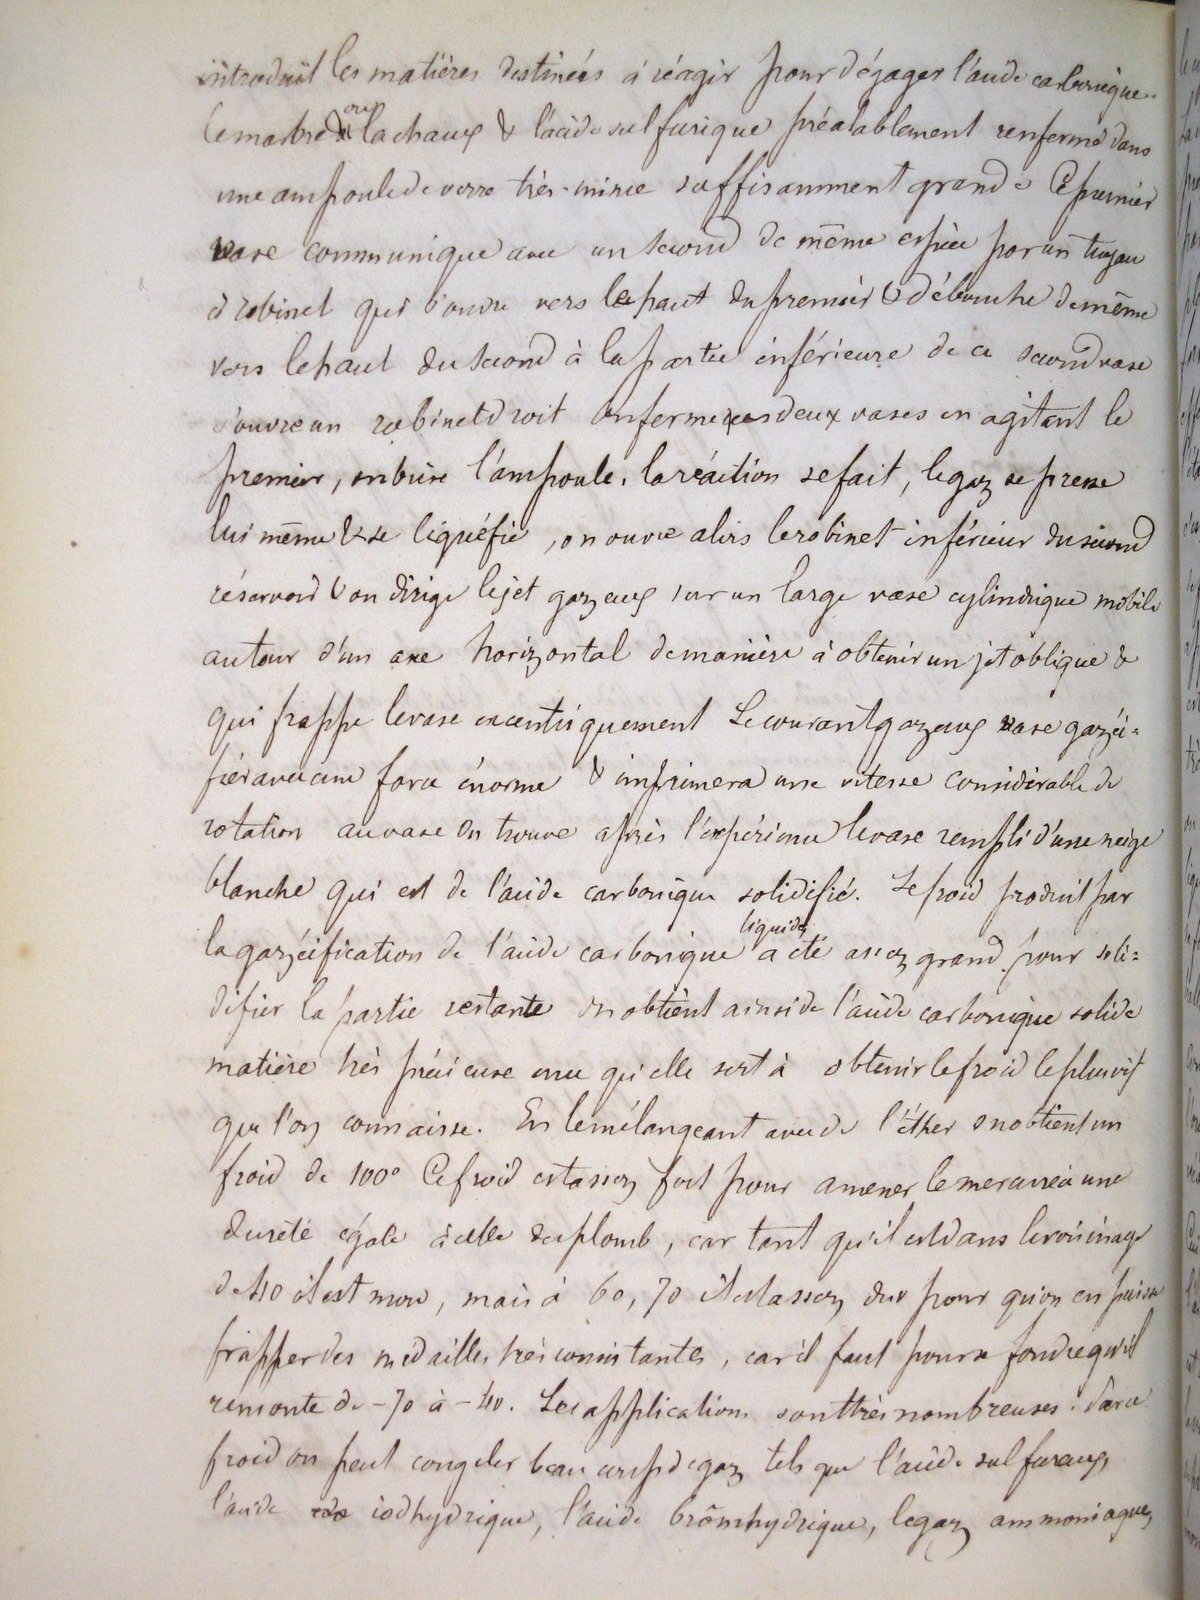 introduit les matières destinées à réagir pour dégager l'acide carbonique.
le marbre ou la chaux & l'acide sulfurique préalablement renfermé dans
une ampoule de verre très-mince suffisamment grande Ce premier
vase communique avec un second de même espèce par un tuyau
à robinet qui s'ouvre vers le haut du premier & débouche de même
vers le haut du second à la partie inférieure de ce second vase
s'ouvre un robinet droit On ferme ces deux vases en agitant le
premier, on brise l'ampoule, la réaction se fait, le gaz se presse
lui même & se liquéfie, on ouvre alors le robinet inférieur du second
réservoir & on dirige le jet gazeux sur un large vase cylindrique mobile
autour d'un axe horizontal de manière à obtenir un jet oblique &
qui frappe le vase excentriquement Le courant gazeux va se gazéi=
fier avec une force énorme & imprimera une vitesse considérable de
rotation au vase On trouve après l'expérience le vase rempli d'une neige
blanche qui est de l'acide carbonique solidifié. Le froid produit par
la gazéification de l'acide carbonique liquide a été assez grand pour soli=
difier la partie restante On obtient ainsi de l'acide carbonique solide
matière très précieuse en ce qu'elle sert à obtenir le froid le plus vif
que l'on connaisse. En le mélangeant avec de l'éther on obtient un
froid de 100° Ce froid est assez fort pour amener le mercure à une
dureté égale à celle du plomb, car tant qu'il est dans le voisinage
de 40 il est mou, mais à 60, 70 il est assez dur pour qu'on en puisse
frapper des médailles très consistantes, car il faut pour se fondre qu'il
remonte de -70 à -40. Les applications sont très nombreuses. Par ce
froid on peut congeler beaucoup de gaz tels que l'acide sulfureux,
l'acide iodhydrique, l'acide brômhydrique, le gaz ammoniaque,